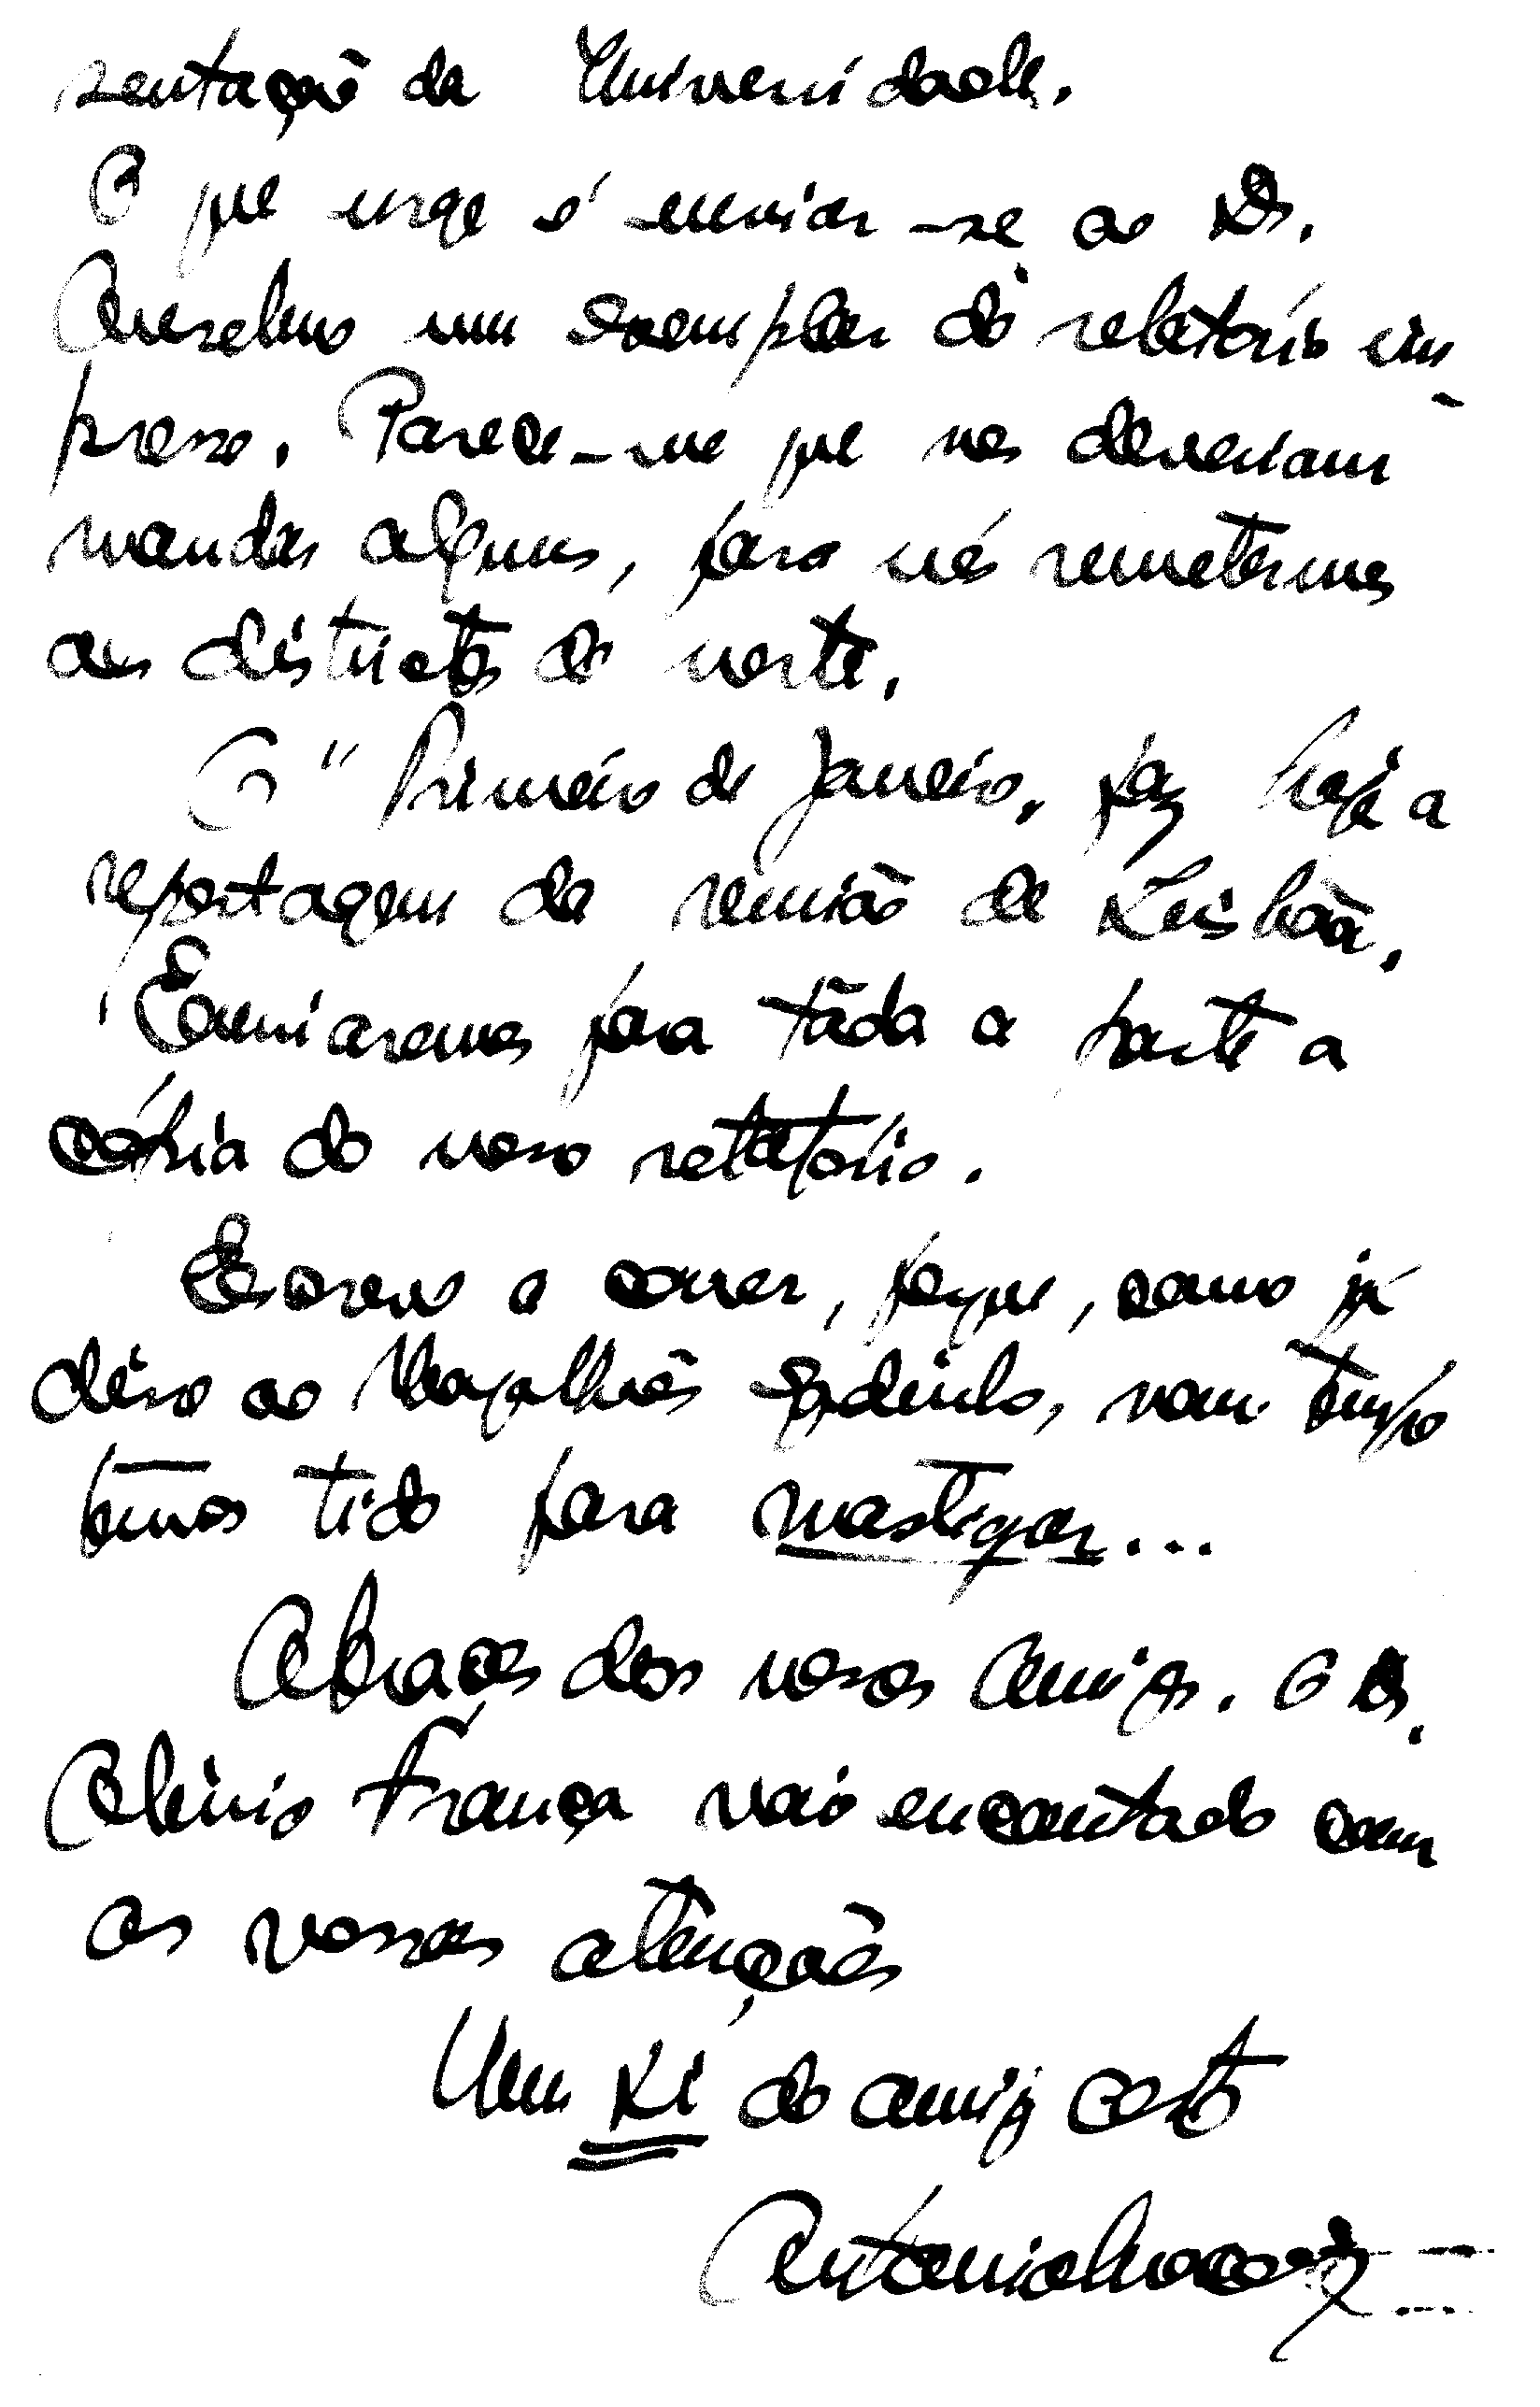 sentação da Universidade.
O que urge é enviar-se ao Dr.
Anselmo um exemplar do relatório im-
presso. Parece-me que nos deveriam
mandar alguns, para nós remetermos
aos districtos do norte.
O "Primeiro de Janeiro" faz hoje a
reportagem da reunião de Lisbôa.
Enviaremos para tôda a parte a
cópia do nosso relatório.
Escrevo a correr, porque, como já
disse ao Magalhães Godinho, nem tempo
temos tido para mastigar...
Abraços dos nossos amigos. O Dr.
Olívio França veio encantado com
as vossas atenções
Um Xi do amigo certo
António Macedo